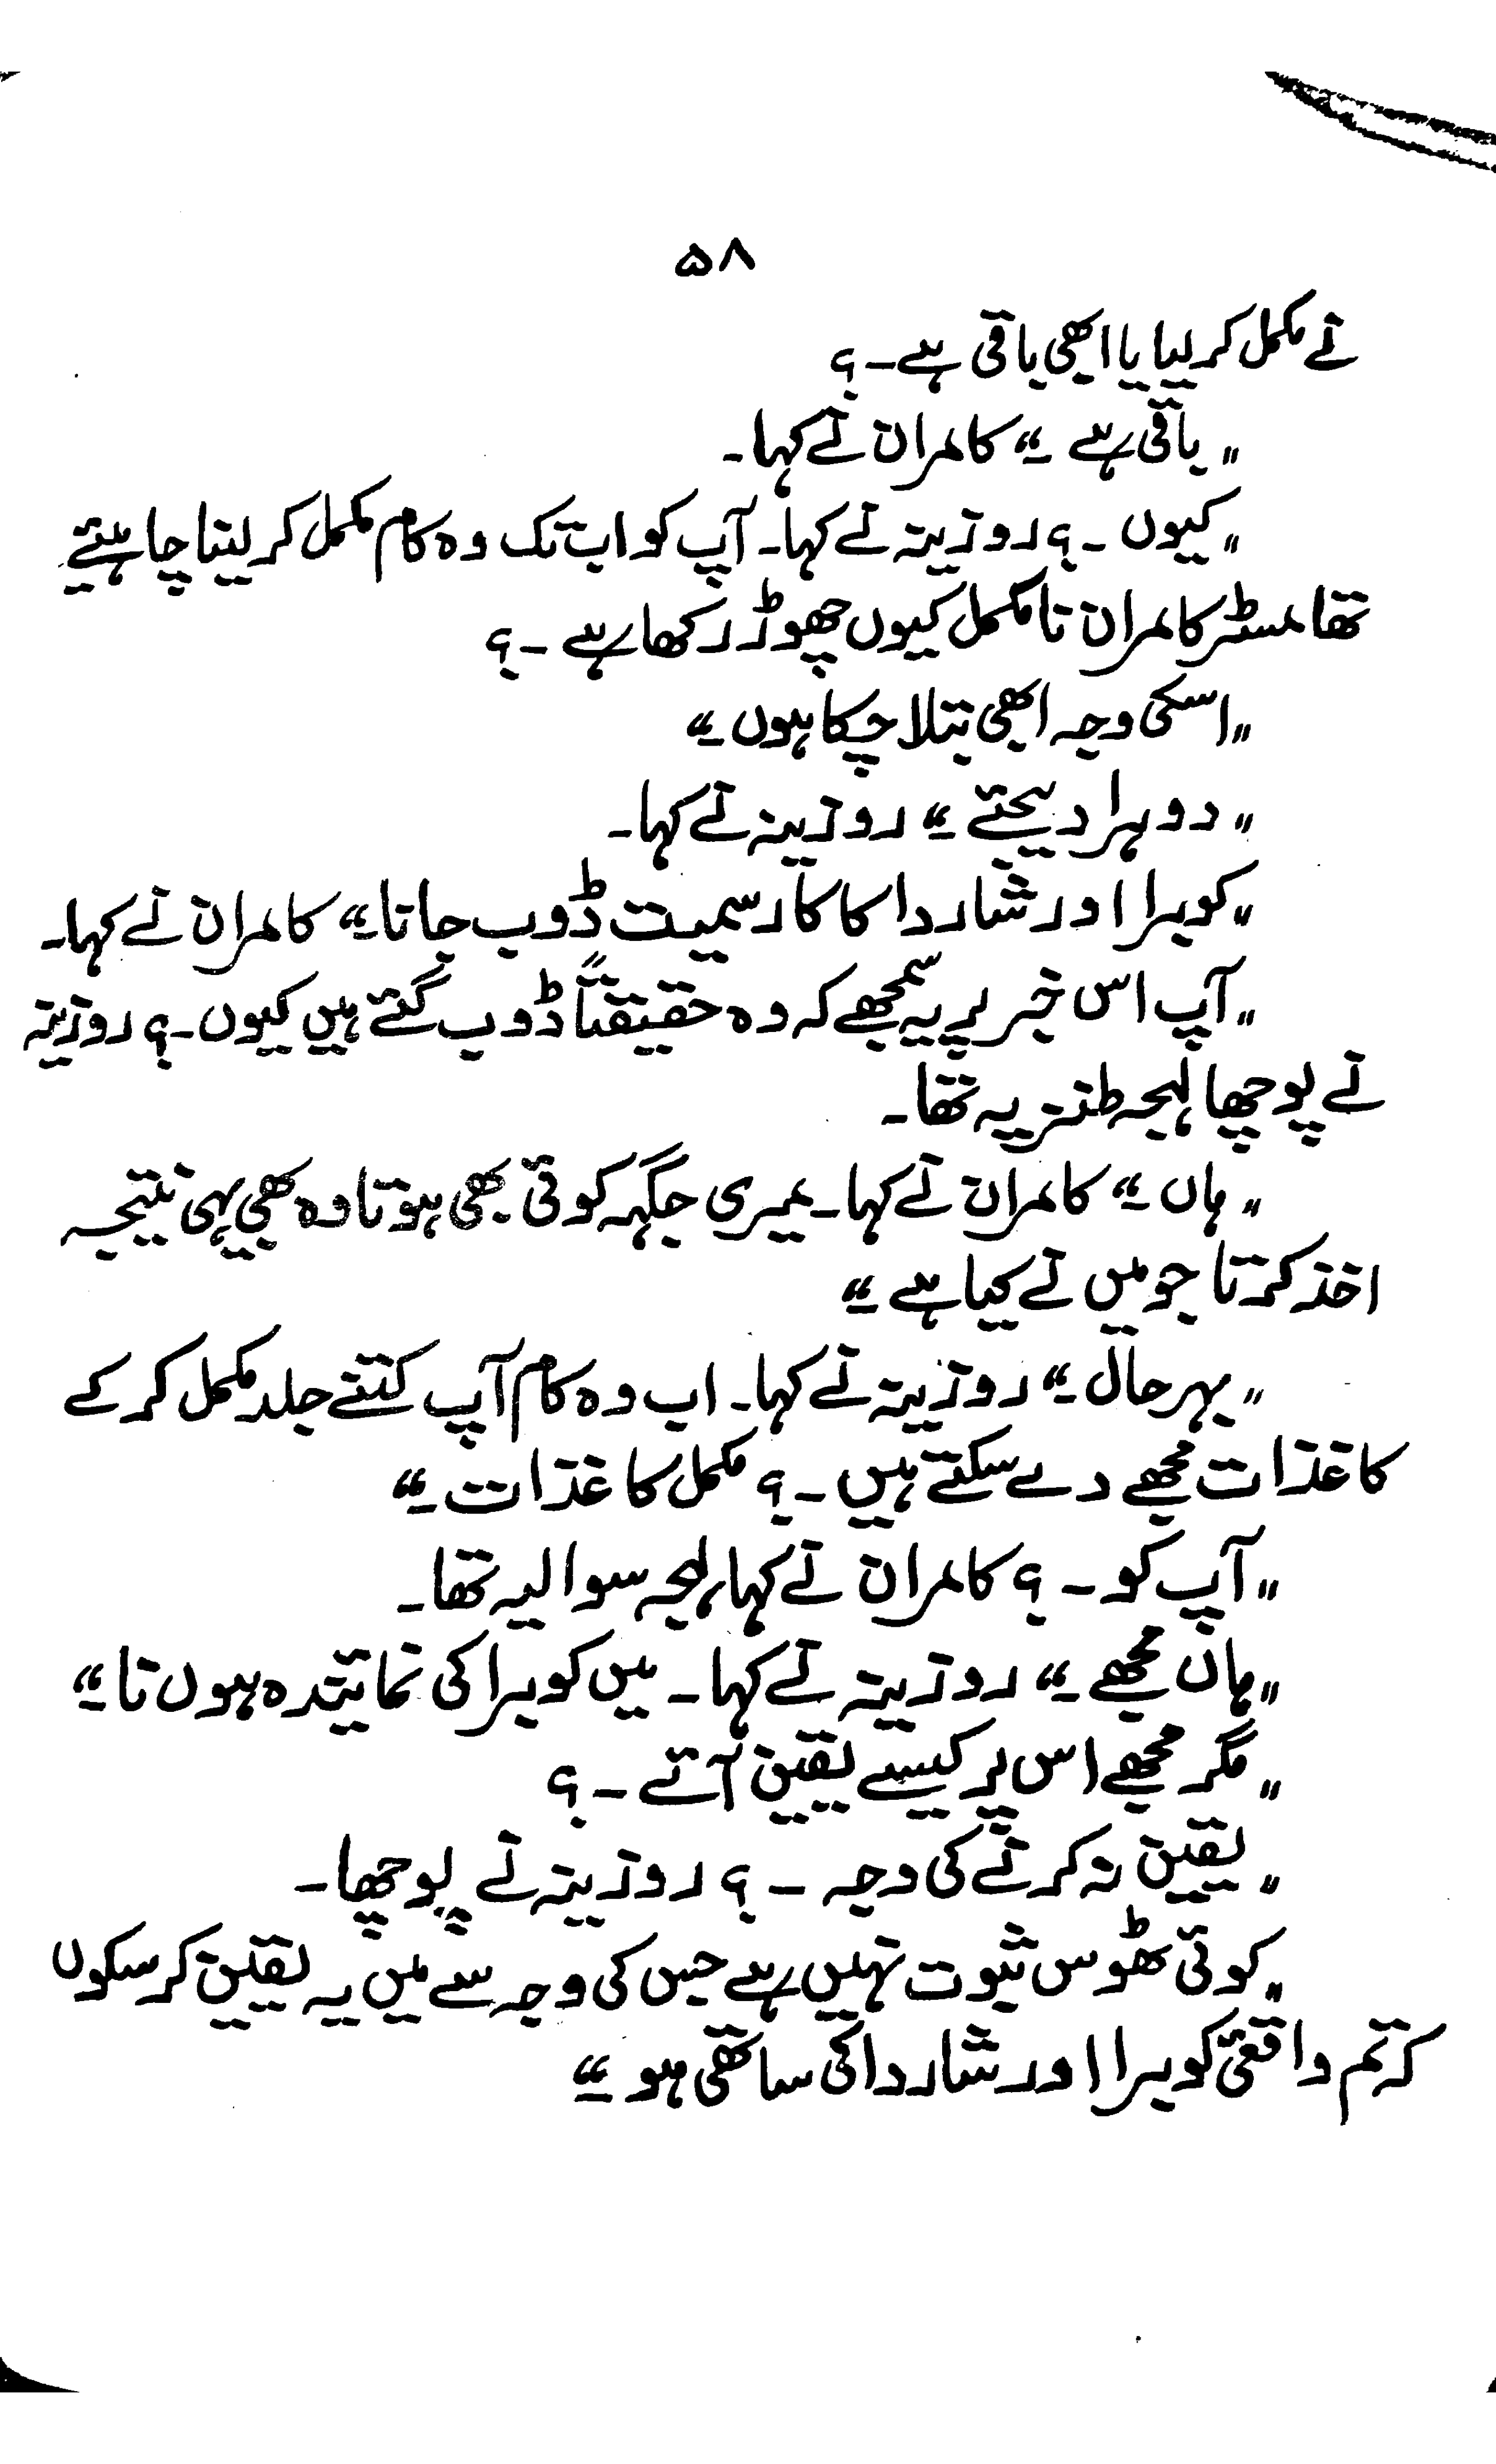 ۵۸
نے مکمل کر لیا یا ابھی باقی ہے ۔ ؟
" باقی ہے ۔" کامران نے کہا۔
" کیوں ۔ ؟ روزینہ نے کہا۔ آپ کو اب تک وہ کام مکمل کر لینا چاہیئے
تھا مسٹر کامران نامکمل کیوں چھوڑ رکھا ہے ۔ ؟
" اسکی وجہ ابھی بتلا چکا ہوں ۔"
" دوہرا دیجئے ۔" روزینہ نے کہا۔
" کوبرا اور شاردا کا کار سمیت ڈوب جانا ۔" کامران نے کہا۔
" آپ اس خبر پر یہ سمجھے کہ وہ حقیقتاً ڈوب گئے ہیں کیوں ۔ ؟ روزینہ
نے پوچھا لہجہ طنزیہ تھا۔
" ہاں ۔" کامران نے کہا۔ میری جگہ کوئی بھی ہوتا وہ بھی یہی نتیجہ
اخذ کرتا جو میں نے کیا ہے ۔"
" بہر حال ۔" روزینہ نے کہا۔ اب وہ کام آپ کتنے جلد مکمل کر کے
کاغذات مجھے دے سکتے ہیں ۔ ؟ مکمل کاغذات ۔"
" آپ کو ۔ ؟ کامران نے کہا، لہجہ سوالیہ تھا۔
" ہاں مجھے ۔" روزینہ نے کہا۔ میں کوبرا کی نمائیندہ ہوں نا ۔"
" مگر مجھے اس پر کیسے یقین آئے ۔ ؟
" یقین نہ کرنے کی وجہ ۔ ؟ روزینہ نے پوچھا۔
" کوئی ٹھوس ثبوت نہیں ہے جس کی وجہ سے میں یہ یقین کر سکوں
کہ تم واقعی کوبرا اور شاردا کی ساتھی ہو ۔"